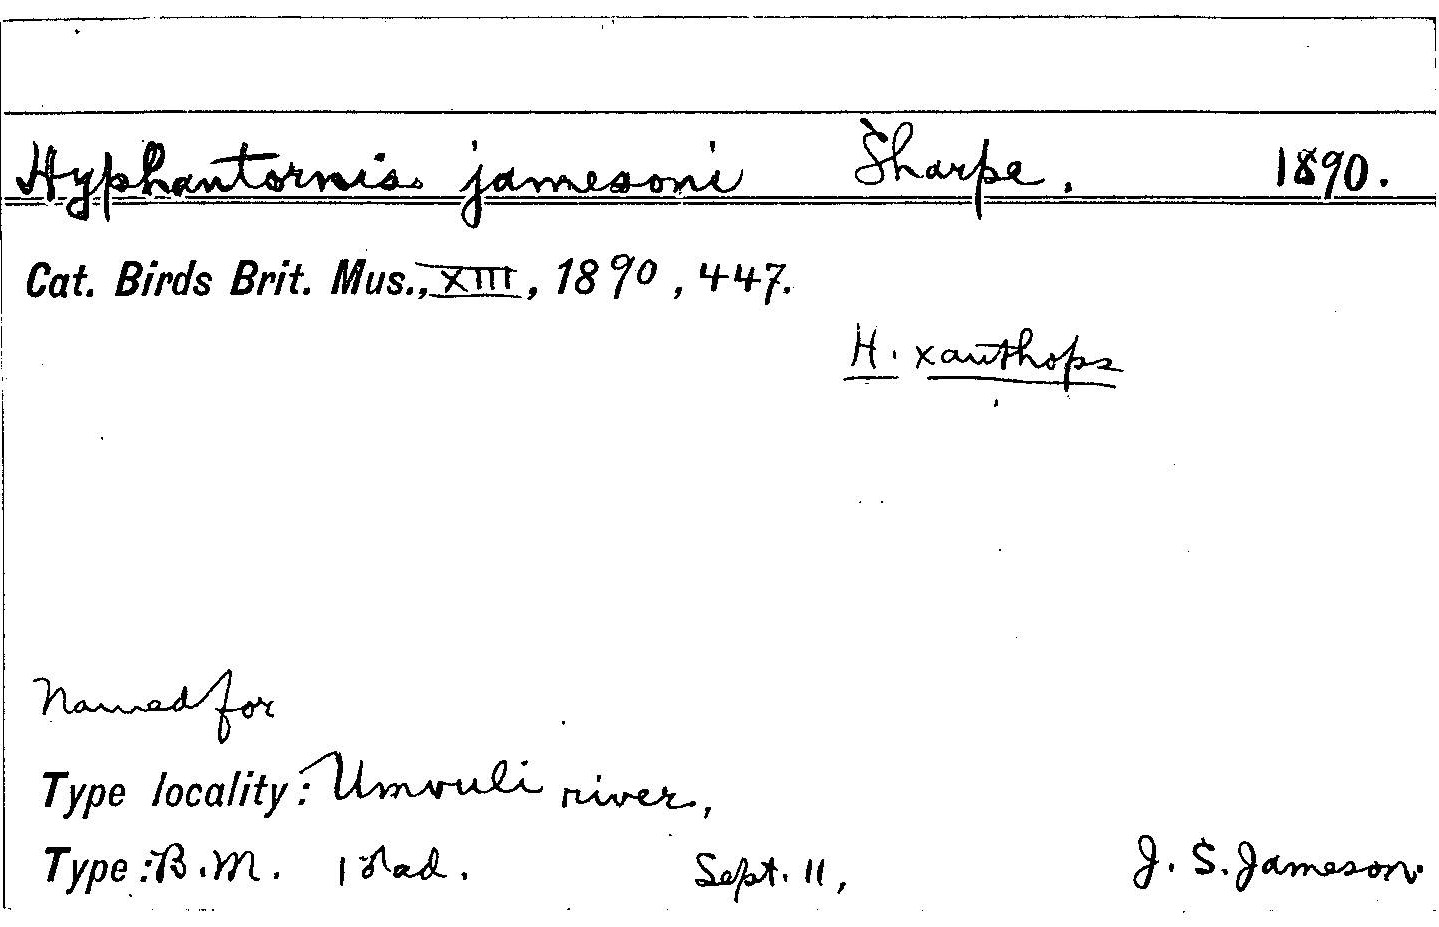 Hyphantornis jamesoni Sharpe. 1890.
Cat. Birds Brit. Mus., XIII, 1890, 447.
H. xanthops
Named for
Type locality: Umvuli river,
Type: B.M. 1 ♂ ad. Sept. 11, J. S. Jameson.